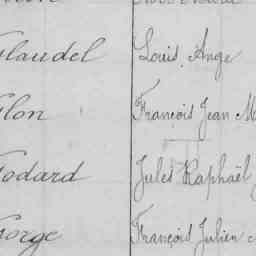 Glaudel Louis Ange
Glon François Jean M
Godard Jules Raphaël
George François Julien